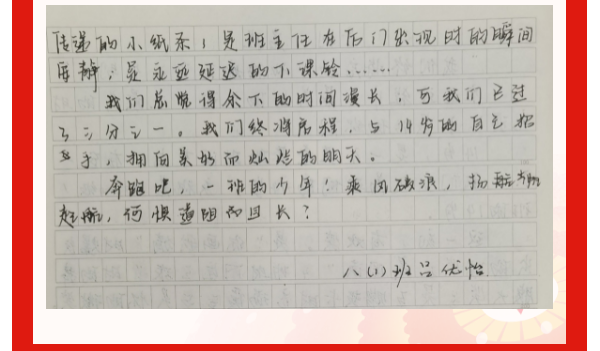 传递的小纸条；是班主任在后门出现时的瞬间
屏静；是永远延迟的下课铃……
我们总觉得余下的时间漫长，可我们已过
了三分之一。我们终将启程，与14岁的自己招
手，拥向美好而灿烂的明天。
奔跑吧，一班的少年！乘风破浪，扬帆
起航，何惧道阻而且长？
八(1)班 吕优怡